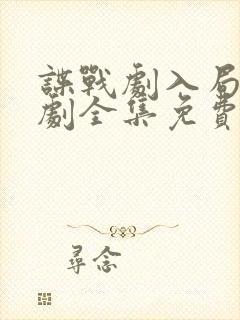 諜戰劇入局
劇全集免費
尋念